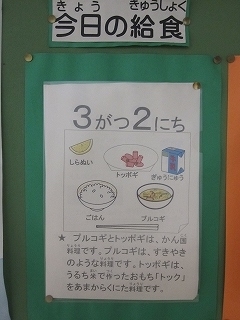 きょう きゅうしょく
今日の給食
3がつ2にち
しらぬい
トッポギ
ぎゅうにゅう
ごはん
プルコギ
★ プルコギとトッポギは、かん国
料理です。プルコギは、すきやき
のような料理です。トッポギは、
うるち米で作ったおもち「トック」
をあまからくにた料理です。